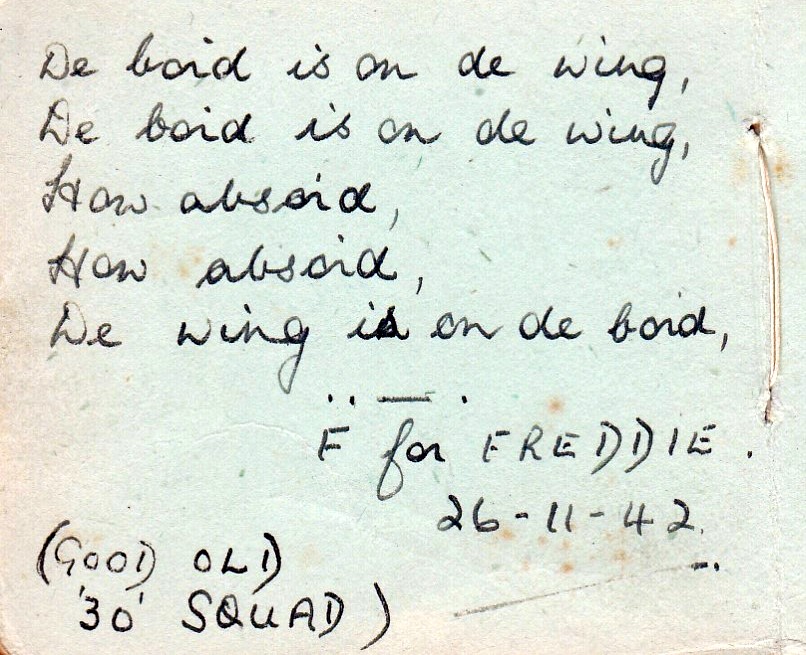 De boid is on de wing,
De boid is on de wing,
How absoid,
How absoid,
De wing is on de boid,
.. — .
F for FREDDIE.
26-11-42.
(GOOD OLD
'30' SQUAD)